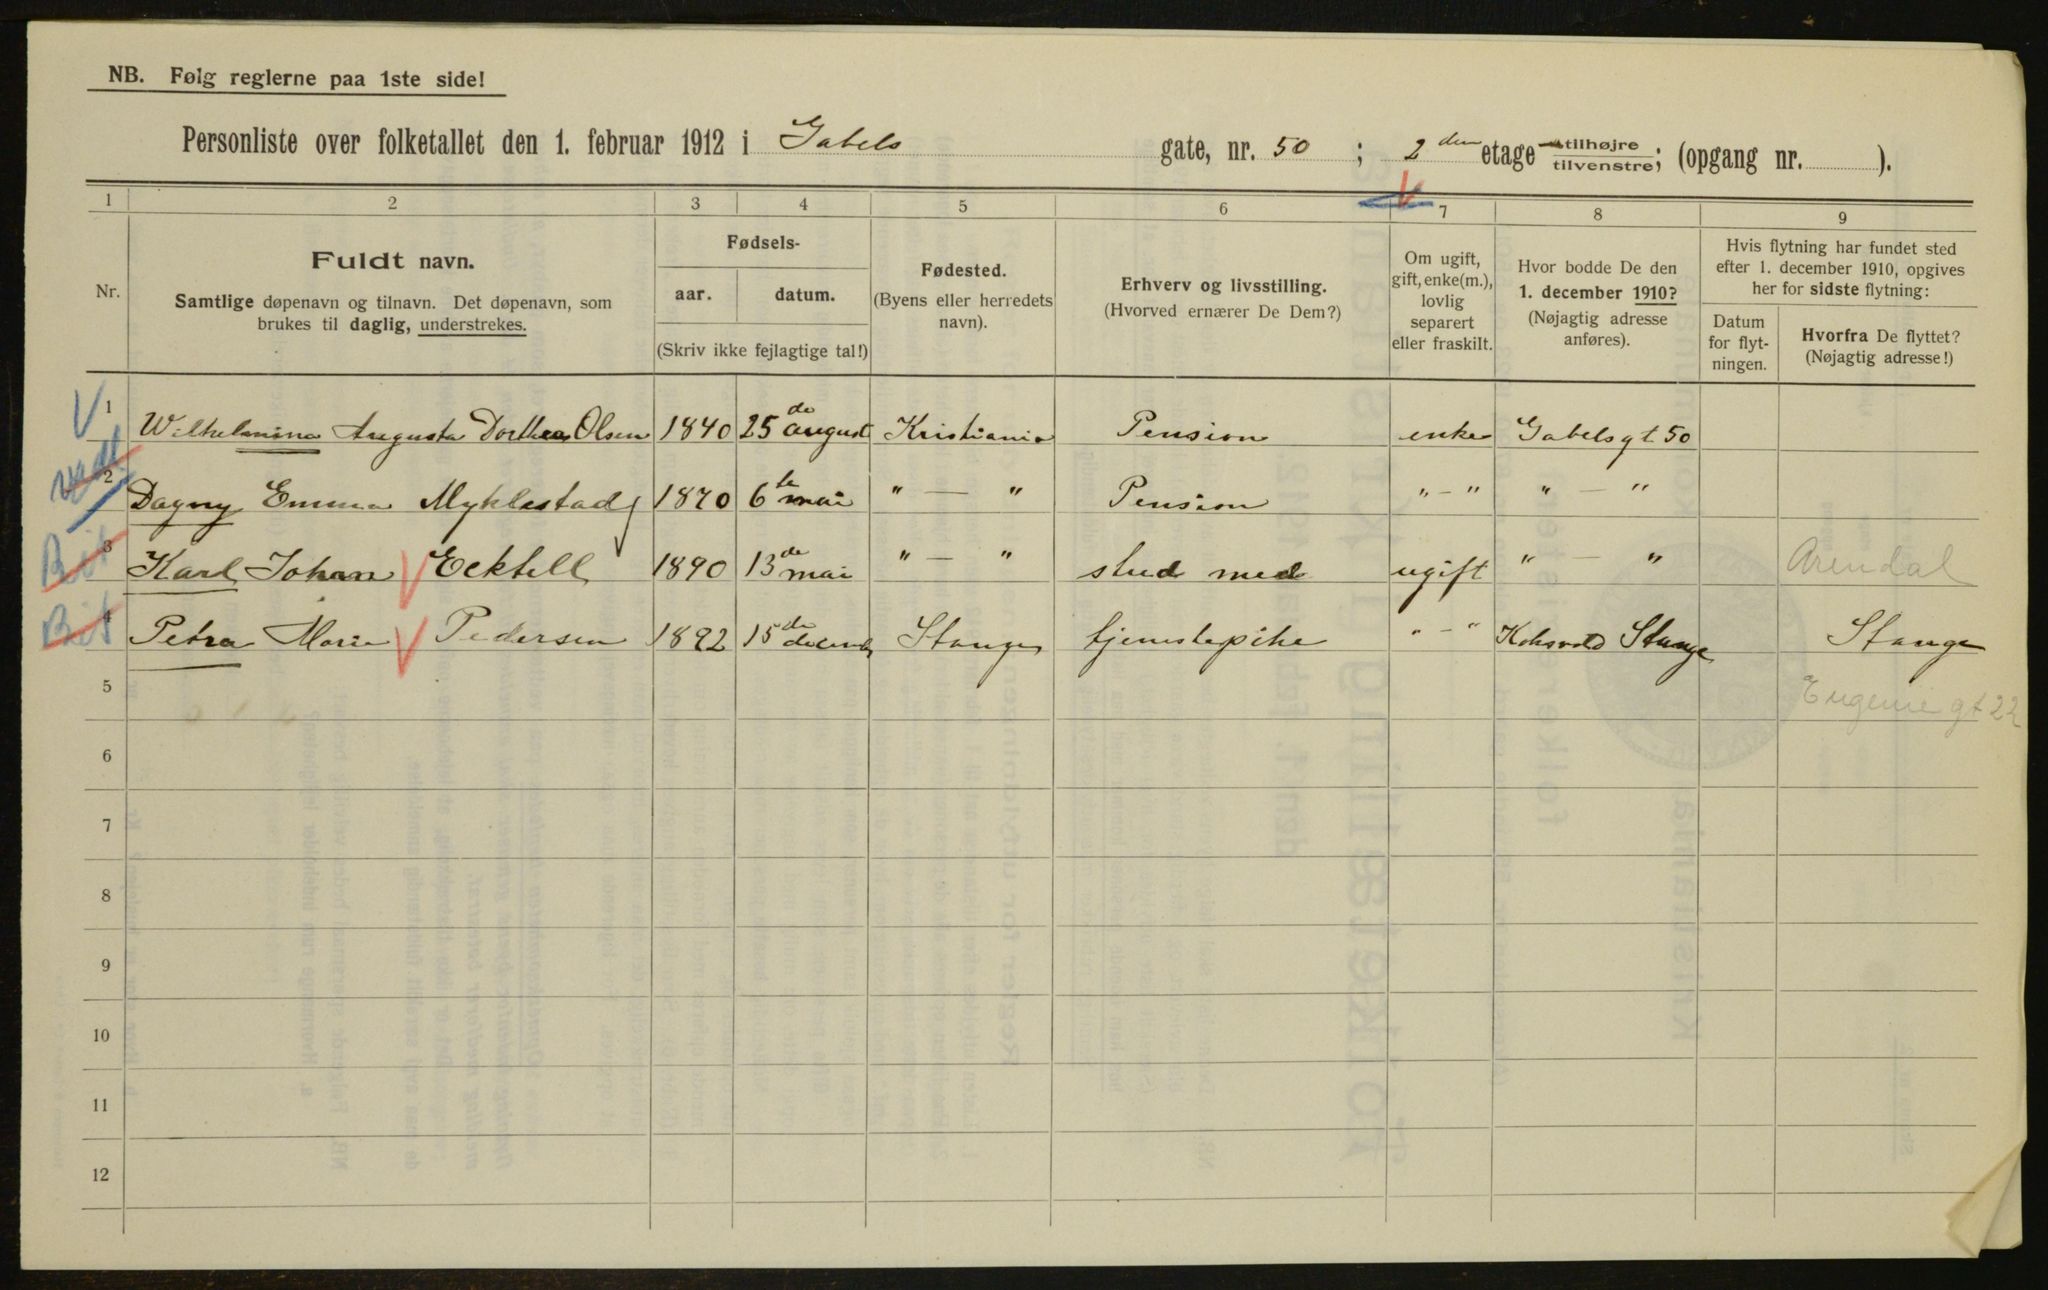 NB. Følg reglerne paa 1ste side!
Personliste over folketallet den 1. februar 1912 i Gabels gate, nr. 50 ; 2 den etage tilhøjre tilvenstre; (opgang nr. ).
1 2 3 4 5 6 7 8 9
Nr.
Fuldt navn.
Samtlige døpenavn og tilnavn. Det døpenavn, som
brukes til daglig, understrekes.
Fødsels-
aar. datum.
(Skriv ikke fejlagtige tal!)
Fødested.
(Byens eller herredets
navn).
Erhverv og livsstilling.
(Hvorved ernærer De Dem?)
Om ugift,
gift, enke(m.),
lovlig
separert
eller fraskilt.
Hvor bodde De den
1. december 1910?
(Nøjagtig adresse
anføres).
Hvis flytning har fundet sted
efter 1. december 1910, opgives
her for sidste flytning:
Datum
for flyt-
ningen.
Hvorfra De flyttet?
(Nøjagtig adresse!)
1 Wilhelmina Augusta Dorthea Olsen 1840 25 de august Kristiania Pension enke Gabelsgt 50
2 Dagny Emma Myklestad 1870 6 te mai " — " Pension " — " " — "
Bit 3 Karl Johan Ecktell 1890 13 de mai " — " stud med ugift " — " Arendal
Bit 4 Petra Marie Pedersen 1892 15 de decemb Stange tjenestepike " — " Stange Stange
5 Eugenie gt 22
6
7
8
9
10
11
12